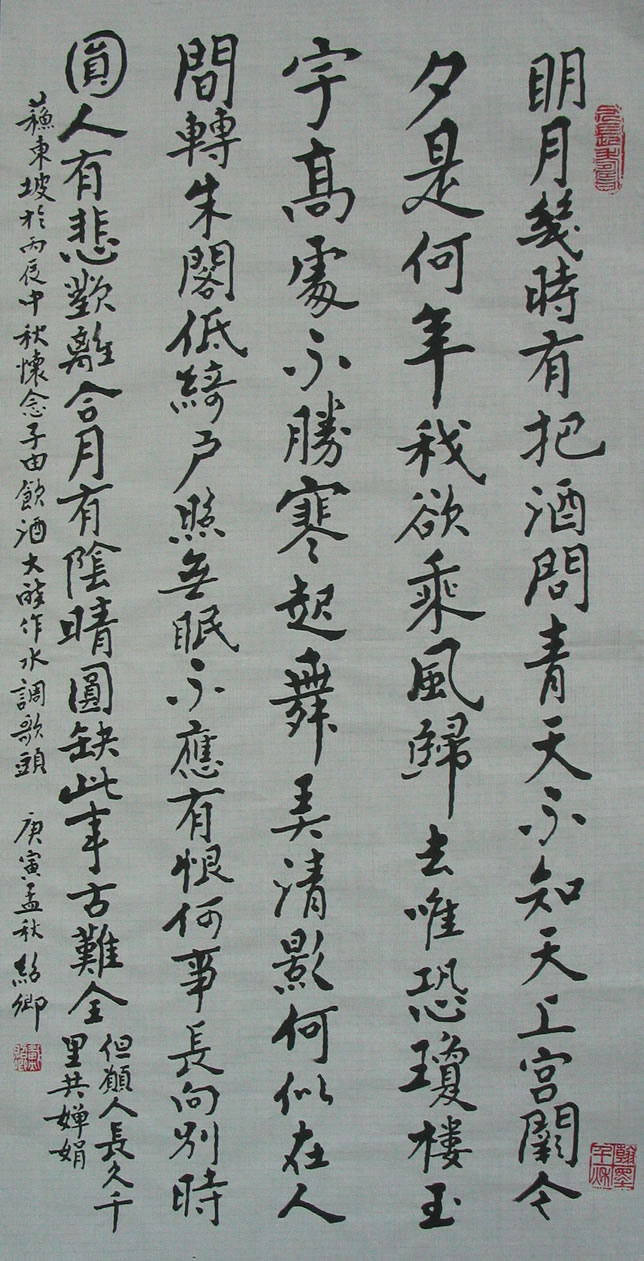 明月幾時有把酒問青天不知天上宮闕今
夕是何年我欲乘風歸去唯恐瓊樓玉
宇高處不勝寒起舞弄清影何似在人
間轉朱閣低綺戶照無眠不應有恨何事長向別時
圓人有悲歡離合月有陰晴圓缺此事古難全
但願人長久千
里共嬋娟
蘇東坡於丙辰中秋懷念子由飲酒大醉作水調歌頭 庚寅孟秋紹卿